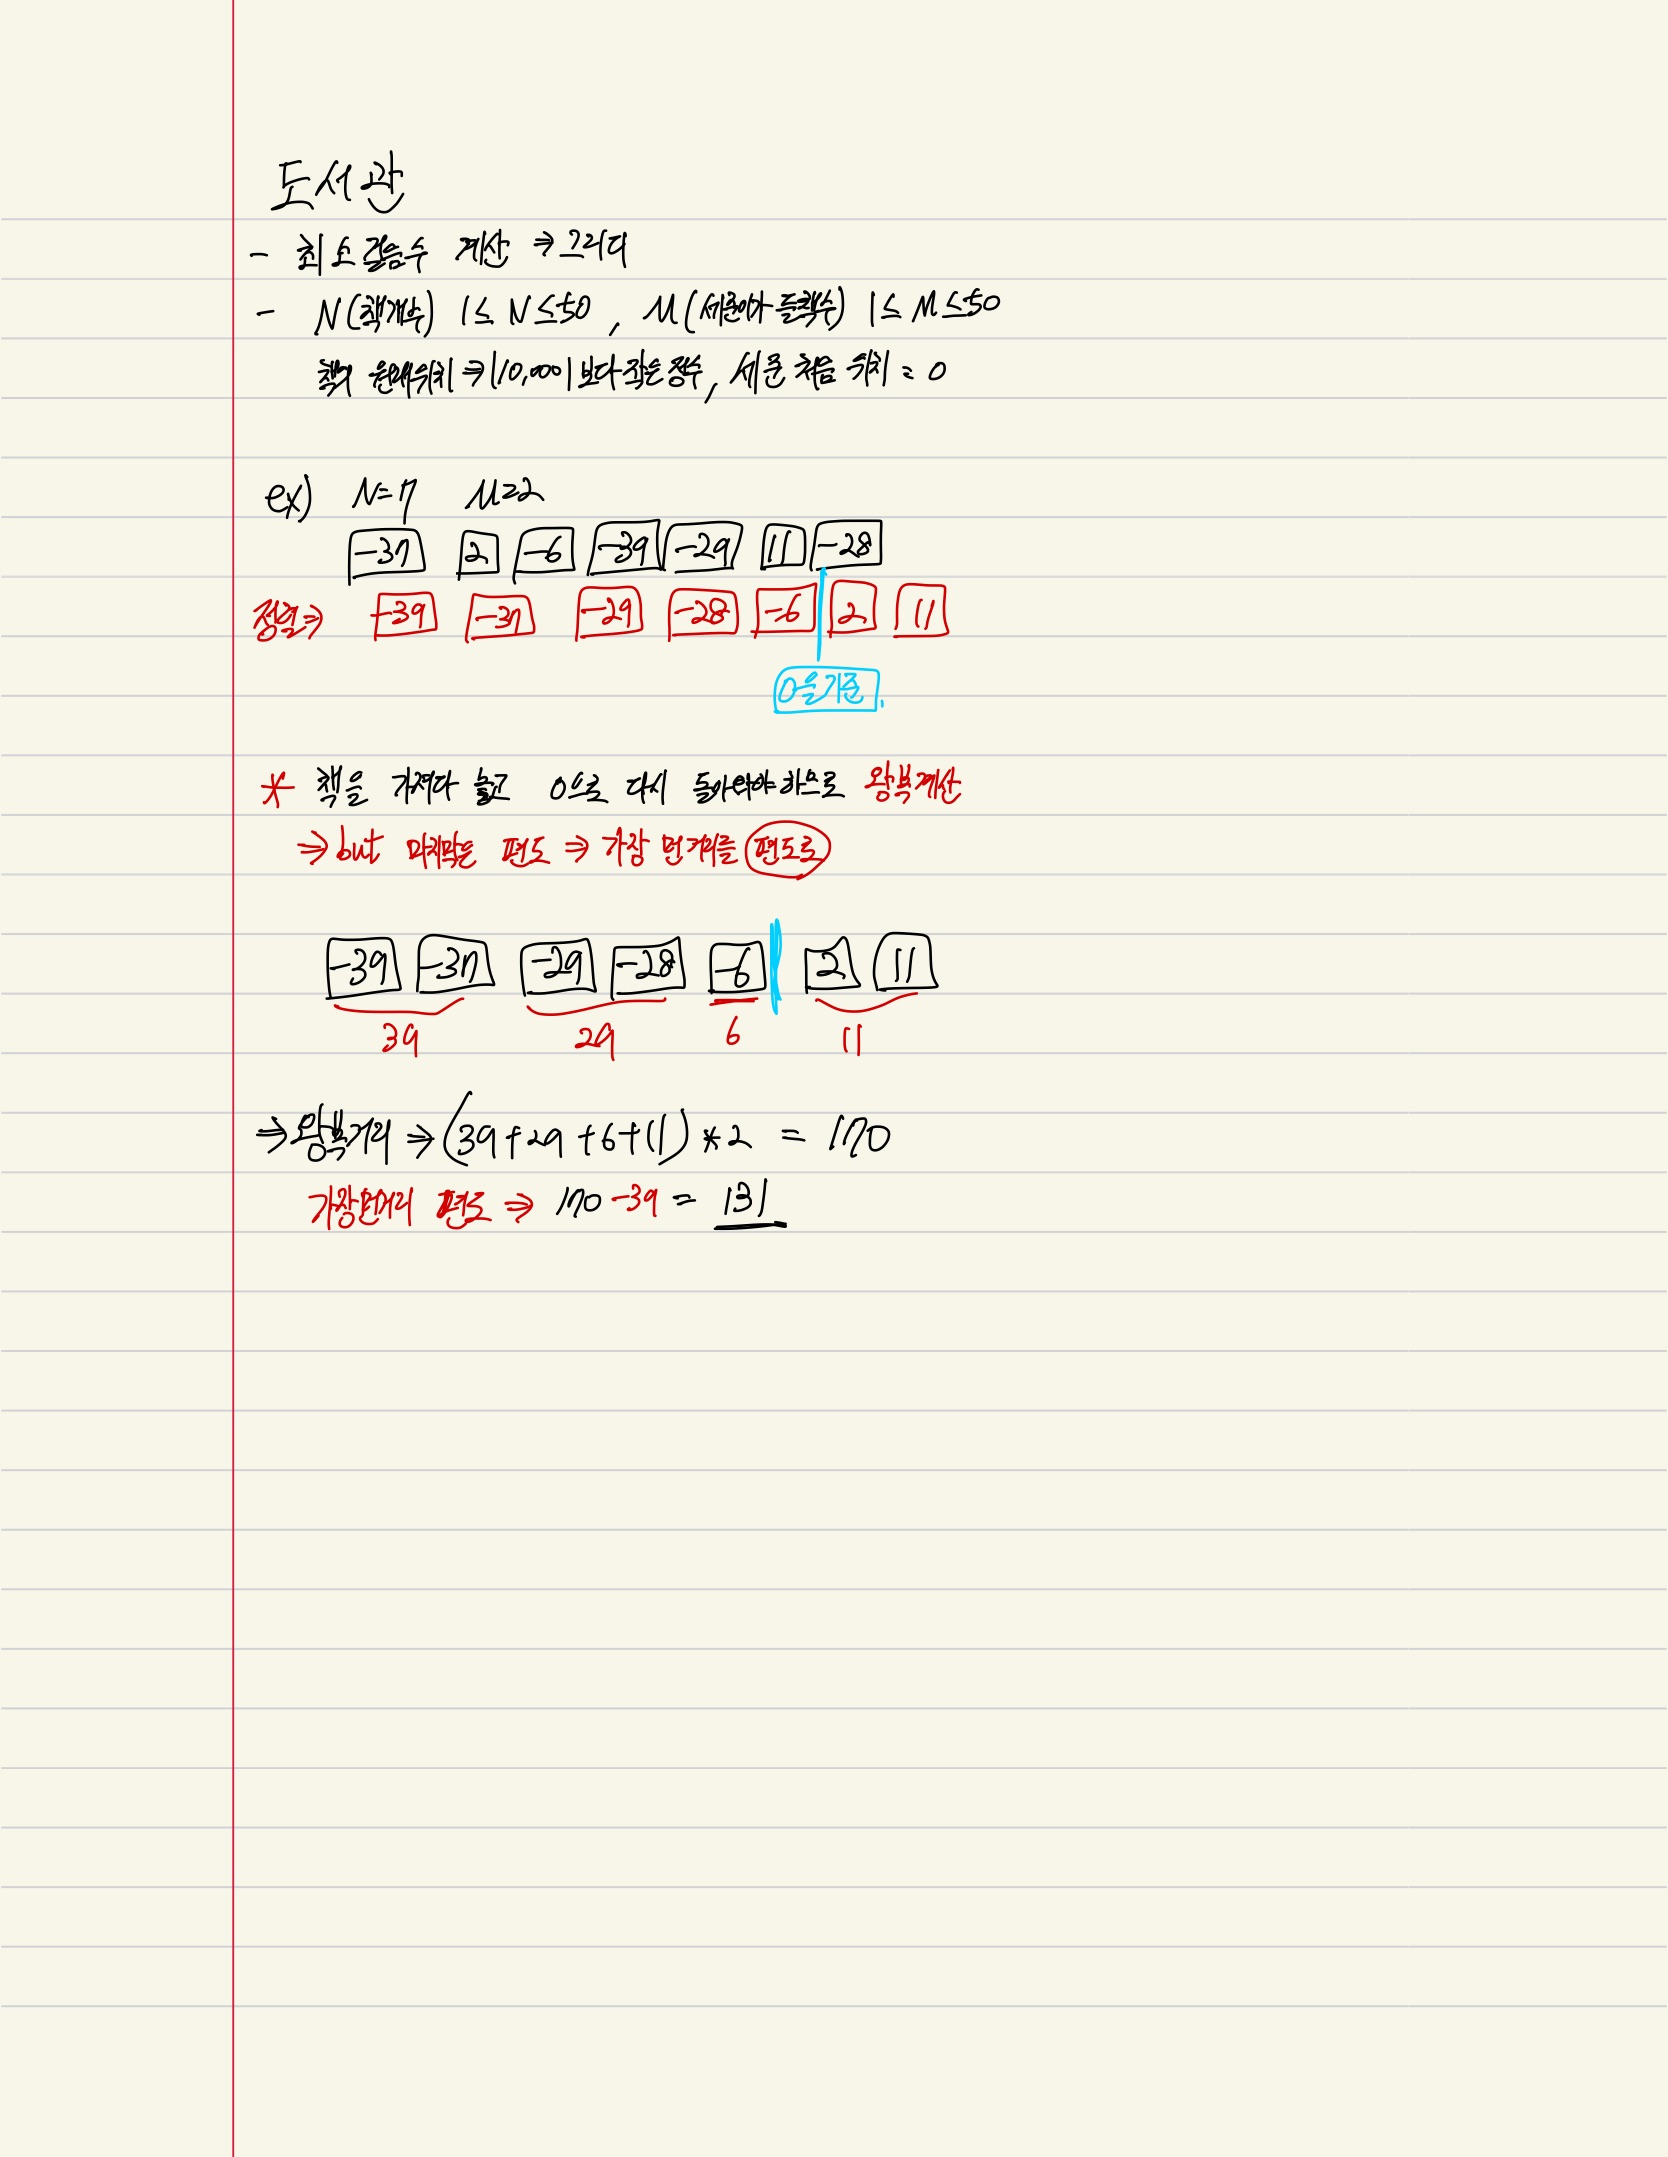 도서관
- 최소 걸음수 계산 ⇒ 그리디
- N(책개수) 1≤N≤50, M(세준이가 들 책수) 1≤M≤50
책의 원래위치 ⇒ |10,000| 보다 작은 정수, 세준 처음 위치 = 0
ex) N=7 M=2
-37 2 -6 -39 -29 11 -28
정렬⇒ -39 -37 -29 -28 -6 2 11
0을 기준.
* 책을 가져다 놓고 0으로 다시 돌아와야 하므로 왕복계산
⇒ but 마지막은 편도 ⇒ 가장 먼거리를 편도로
-39 -37 -29 -28 -6 2 11
39 29 6 11
⇒ 왕복거리 ⇒ (39+29+6+11)*2 = 170
가장먼거리 편도 ⇒ 170-39 = 131